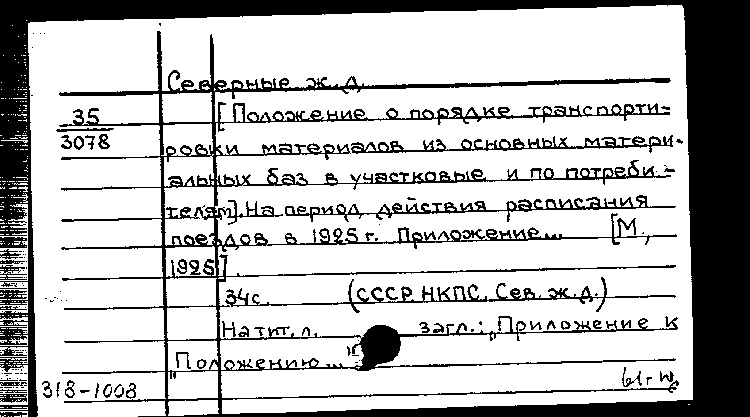 Северные ж. д.
35
3078
[Положение о порядке транспорти-
ровки материалов из основных матери-
альных баз в участковые и по потреби-
телям]. На период действия расписания
поездов в 1925 г. Приложение... [М.,
1925].
34с. (СССР НКПС. Сев. ж.д.)
На тит. л. загл.: „Приложение к
„Положению..."
318-1008